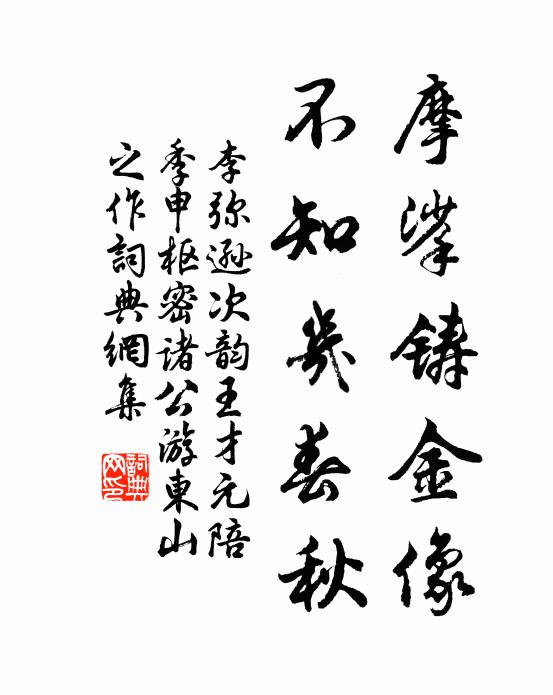 摩挲铸金像
不知幾春秋
李弥遜次韵王才元陪
季申枢密诸公游東山
之作詞典網集
詞典网印